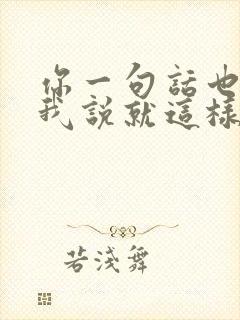 你一句話也
我說就這樣
若淺舞